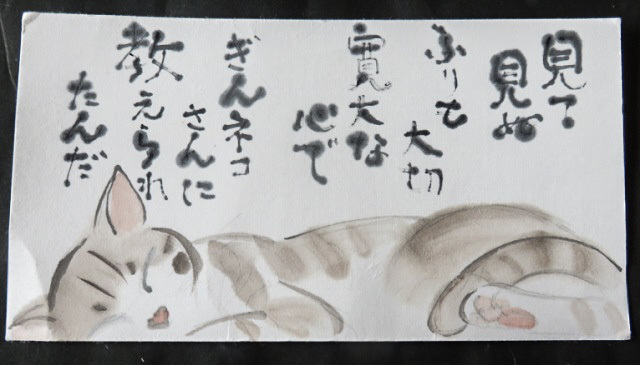 見て
見ぬ
ふりも
大切
寛大な
心で
ぎんネコ
さんに
教えられ
たんだ